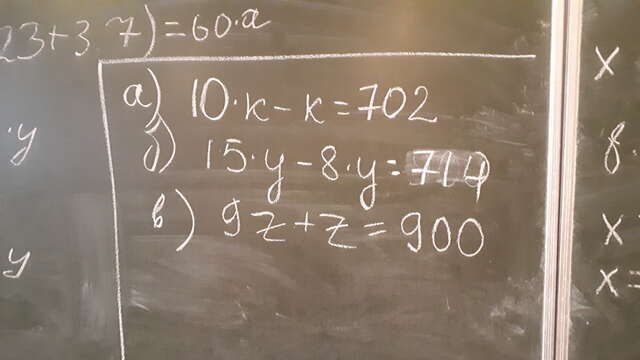 23+37)=60·a
а) 10·к-к=702
·y
б) 15·y-8·y=714
в) 9z+z=900
y
x
x
x=